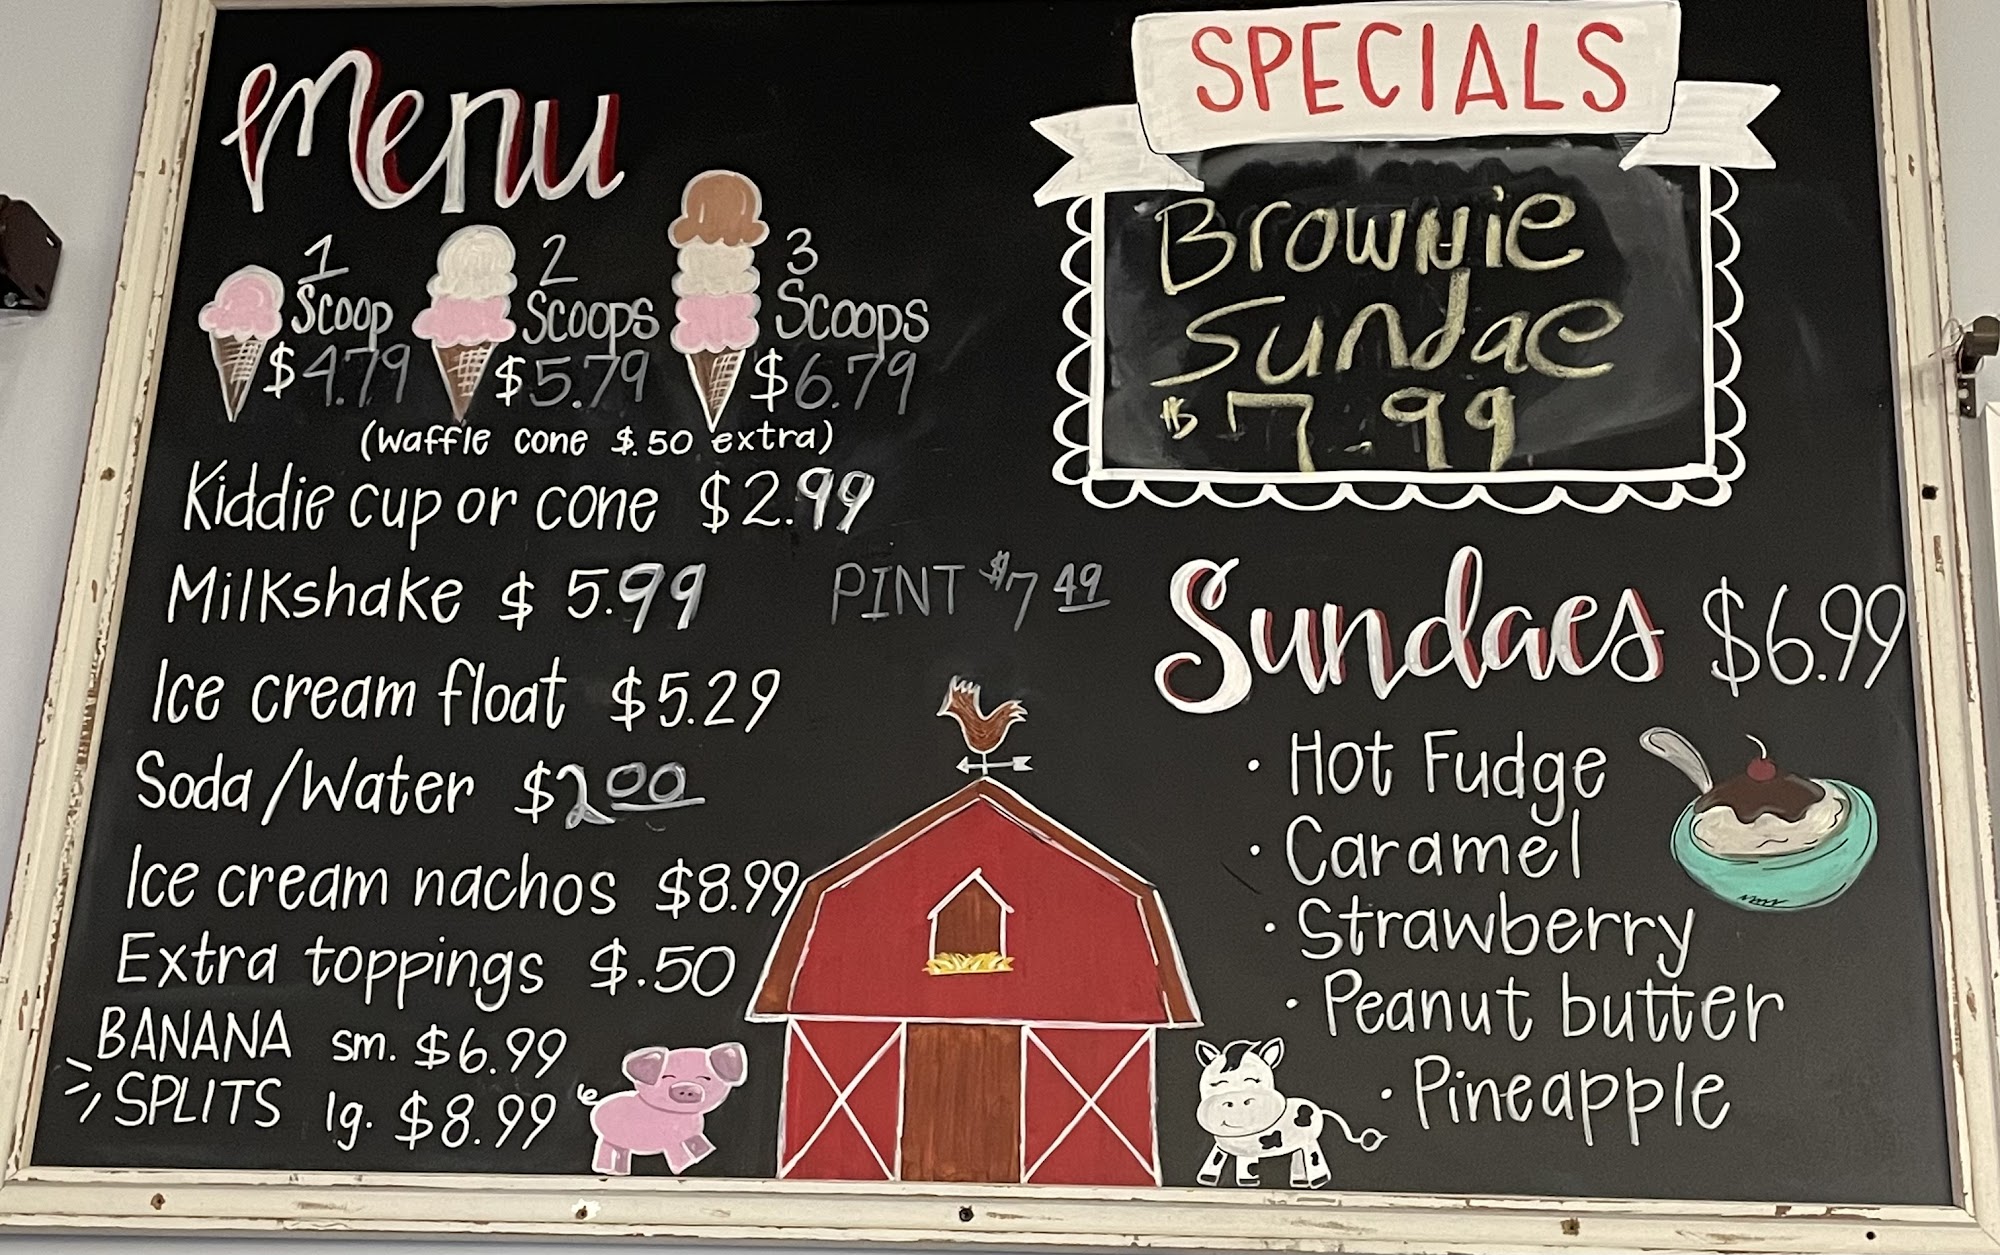 Menu
1 Scoop $4.79
2 Scoops $5.79
3 Scoops $6.79
(waffle cone $.50 extra)
Kiddie cup or cone $2.99
Milkshake $5.99
PINT $7 49
Ice cream float $5.29
Soda/Water $2 00
Ice cream nachos $8.99
Extra toppings $.50
BANANA SPLITS
sm. $6.99
lg. $8.99
SPECIALS
Brownie
Sundae
$7.99
Sundaes $6.99
· Hot Fudge
· Caramel
· Strawberry
· Peanut butter
· Pineapple